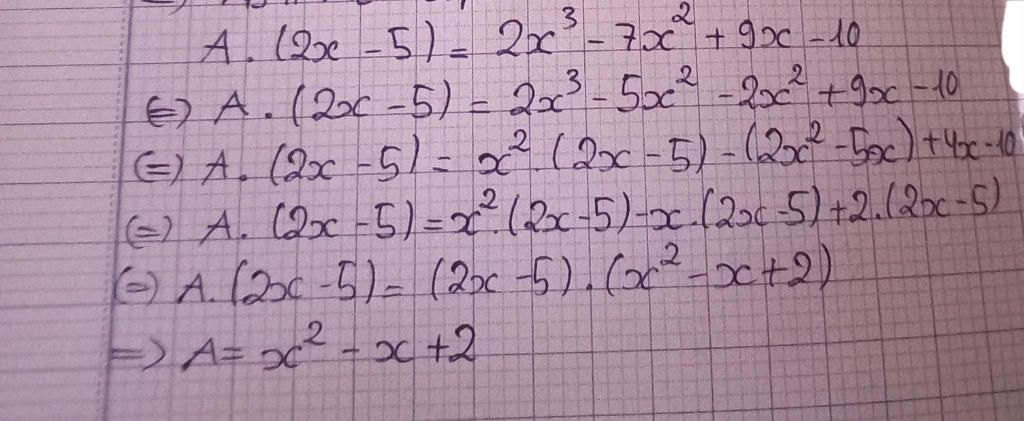 A. (2x - 5) = 2x³ - 7x² + 9x - 10
⇔ A. (2x - 5) = 2x³ - 5x² - 2x² + 9x - 10
(=) A. (2x - 5) = x². (2x - 5) - (2x² - 5x) + 4x - 10
(=) A. (2x - 5) = x². (2x - 5) - x. (2x - 5) + 2. (2x - 5)
(=) A. (2x - 5) = (2x - 5). (x² - x + 2)
=> A = x² - x + 2